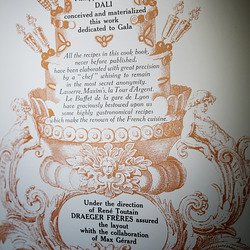 DALI
conceived and materialized
this work
dedicated to Gala
All the recipes in this cook book,
never before published,
have been elaborated with great precision
by a "chef" whising to remain
in the most secret anonymity.
Lasserre, Maxim's, la Tour d'Argent.
Le Buffet de la gare de Lyon
have graciously bestowed upon us
some highly gastronomical recipes
which make the renown of the French cuisine.
Under the direction
of René Toutain
DRAEGER FRÈRES assured
the layout
whith the collaboration
of Max Gérard